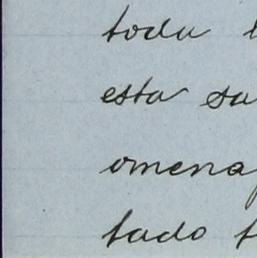 toda
esta sa
omena
tado